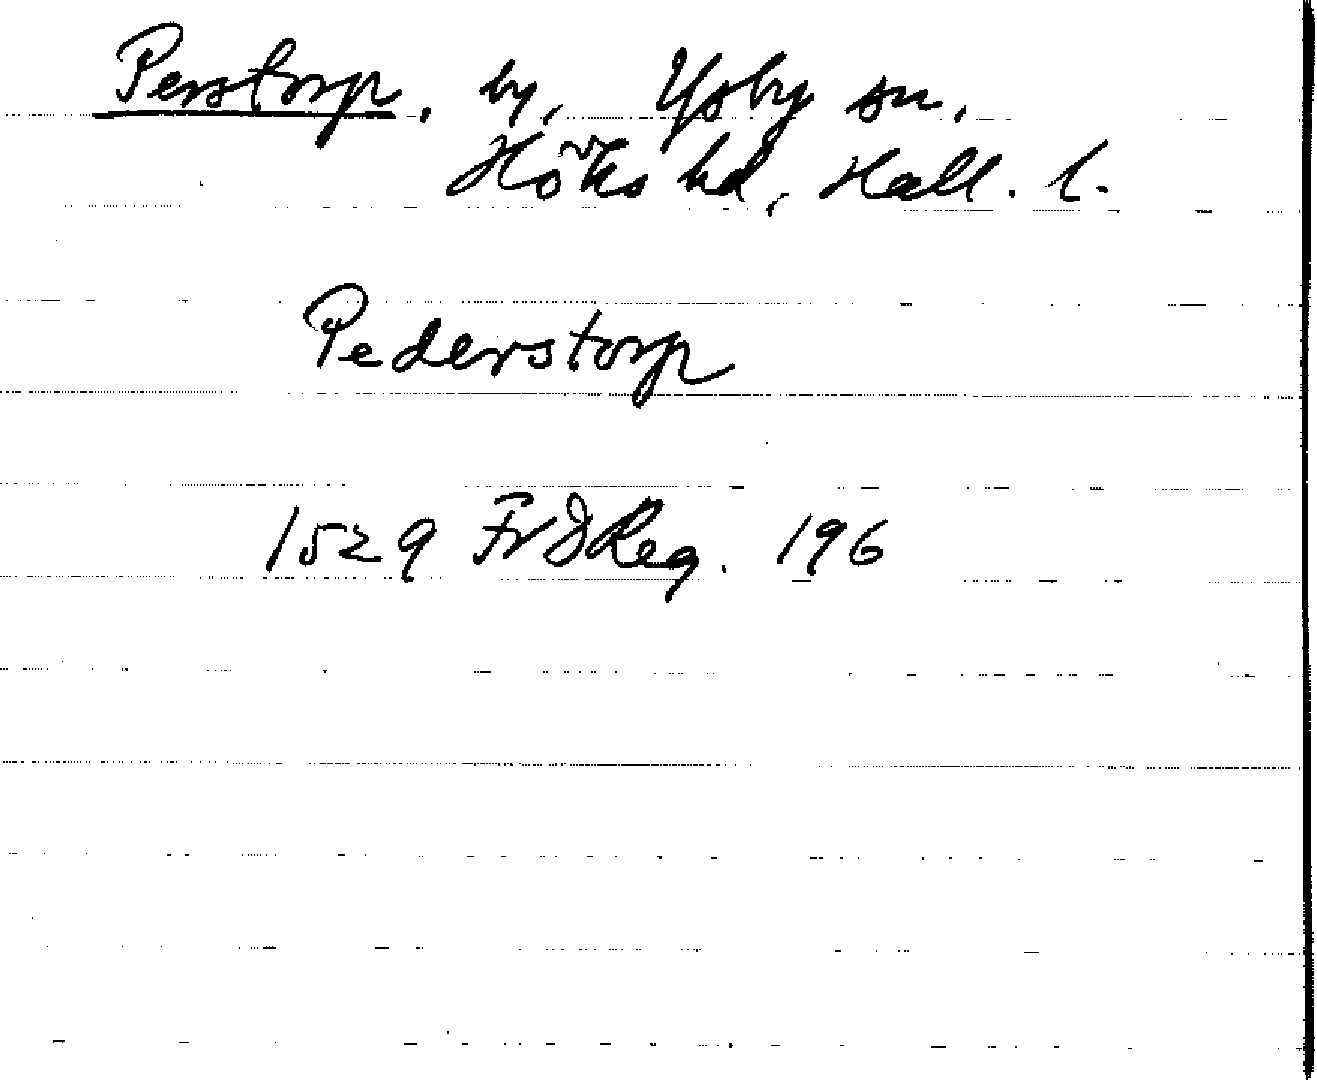 Perstorp, by, Ysby sn,
Höks hd, Hall. l.
Pederstorp
1529 FrIReg. 196